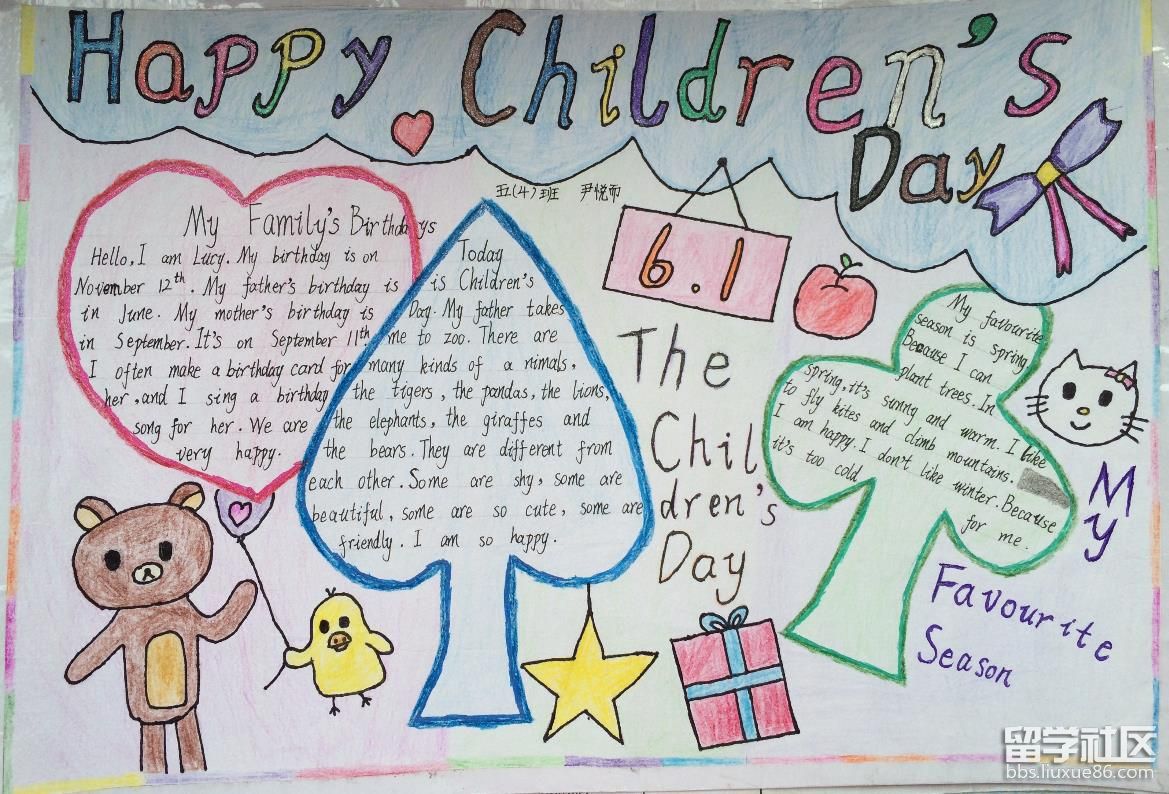 Happy Children's
Day
五(4)班 尹悦而
6.1
My Family's Birthdays
Hello, I am Lucy. My birthday is on
November 12th. My father's birthday is
in June. My mother's birthday is
in September. It's on September 11th
I often make a birthday card for
her, and I sing a birthday
song for her. We are
very happy.
Today
is Children's
Day. My father takes
me to zoo. There are
many kinds of animals,
the tigers, the pandas, the lions,
the elephants, the giraffes and
the bears. They are different from
each other. Some are shy, some are
beautiful, some are so cute, some are
friendly. I am so happy.
The
Chil
dren's
Day
My favourite
season is spring.
Because I can
plant trees. In
spring, it's sunny and warm. I like
to fly kites and climb mountains.
I am happy. I don't like winter. Because
it's too cold
for me.
My
Favourite
Season
留学社区
bbs.liuxue86.com